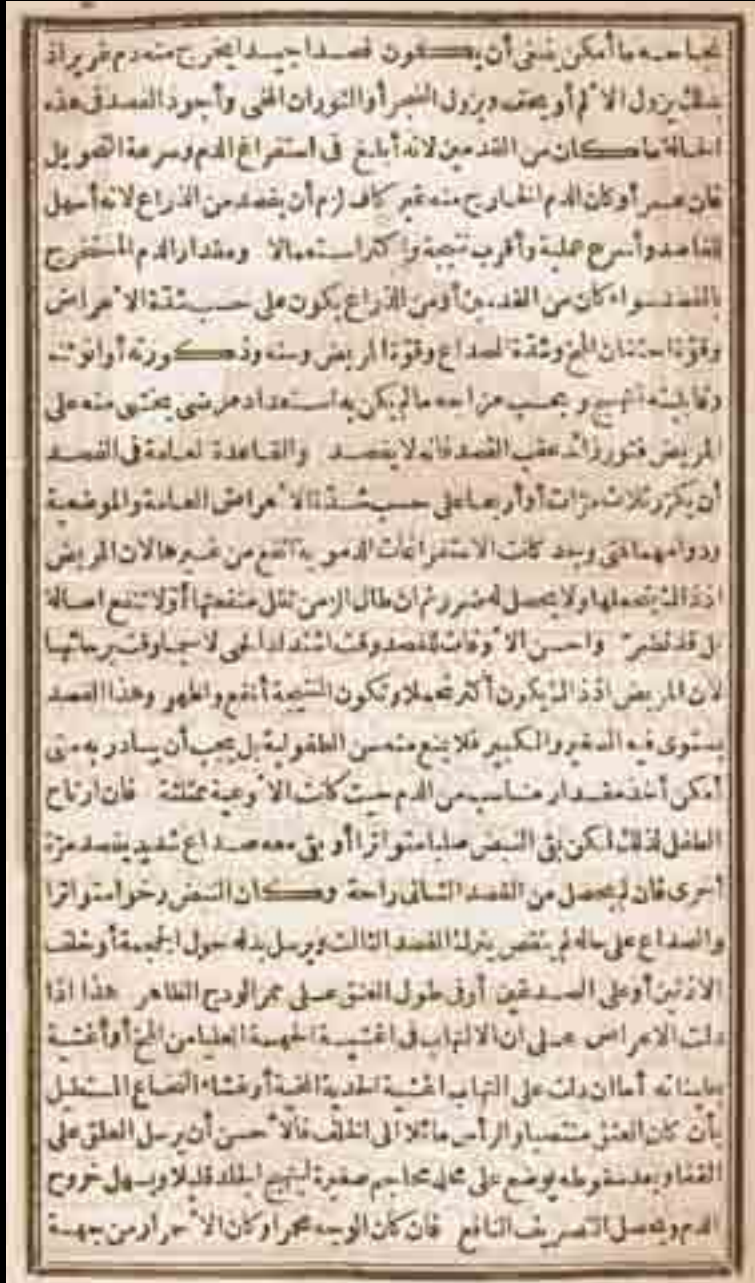 بحجامته ما أمكن ينبغى أن يكون فصدا جيدا يخرج منه دم غزير اذ
بذلك يزول الألم أو يخف ويزول الضجر أو الثوران المخى وأجود الفصد فى هذه
الحالة ما كان من القدمين لانه أبلغ فى استفراغ الدم وسرعة التحويل
فان عسر أو كان الدم الخارج منه غير كاف لزم أن يفصد من الذراع لانه أسهل
للفاصد وأسرع عملية وأقرب نتيجة وأكثر استعمالا ومقدار الدم المستخرج
بالفصد سواء كان من القدمين أو من الذراع يكون على حسب شدة الأعراض
وقوة احتقان المخ وشدة الصداع وقوة المريض وسنه وذكورته أو انوثته
وقابليته للتهيج وبحسب مزاجه ما لم يكن به استعداد مرضى يخشى منه على
المريض فتور زائد عقب الفصد فانه لا يفصد والقاعدة العامة فى الفصد
أن يكرر ثلاث مرات أو أربعا على حسب شدة الأعراض العامة والموضعية
ودوامها فمتى وجدت كانت الاستفراغات الدموية أنفع من غيرها لان المريض
اذ ذاك يتحملها ولا يحصل له ضرر ثم ان طال الزمن تقل منفعتها أو لا تنفع اصالة
بل قد تضر وأحسن الأوقات للفصد وقت اشتداد الحمى لاسيما وقت هيجانها
لان المريض اذ ذاك يكون أكثر تحملا وتكون النتيجة أنفع وأظهر وهذا الفصد
يستوى فيه الصغير والكبير فلا يمنع منه سن الطفولية بل يجب أن يبادر به متى
أمكن أخذ مقدار مناسب من الدم حيث كانت الأوعية ممتلئة فان ارتاح
الطفل لذلك لكن بقى النبض صلبا متواترا أو بقى معه صداع شديد يفصد مرة
أخرى فان لم يحصل من الفصد الثانى راحة وكان النبض رخوا متواترا
والصداع على حاله لم ينقص يترك الفصد الثالث ويرسل بدله حول الجمجمة أو خلف
الاذنين أو على الصدغين أو فى طول العنق على ممر الودج الظاهر هذا اذا
دلت الاعراض على ان الالتهاب فى اغشية الجهة العليا من المخ أو أغشية
بطيناته أما ان دلت على التهاب اغشية الحدبة المخية أو غشاء النخاع المستطيل
بأن كان العنق منتصبا والرأس مائلا الى الخلف فالأحسن أن يرسل العلق على
القفا وبعد سقوطه يوضع على محله محاجم صغيرة ليتهيج الجلد قليلا ويسهل خروج
الدم ويحصل التصريف النافع فان كان الوجه محمرا وكان الأحمرار من جهة